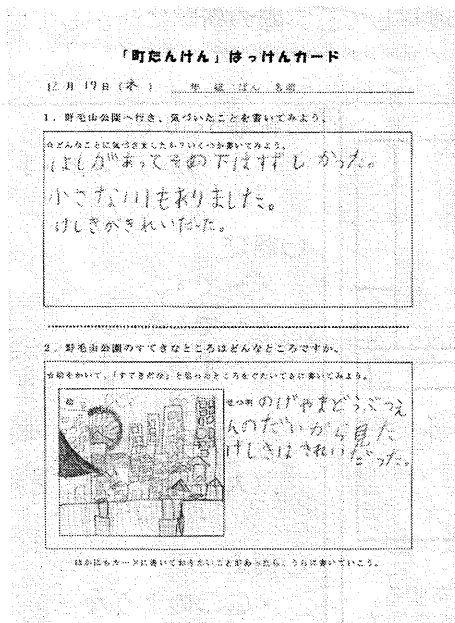 「町たんけん」はっけんカード
12月19日（木） 年 組 ばん 名前
1．野毛山公園へ行き、気づいたことを書いてみよう。
☆どんなことに気づきましたか？いくつか書いてみよう。
はしがあってその下はすずしかった。
小さな川もありました。
けしきがきれいだった。
2．野毛山公園のすてきなところはどんなところですか。
☆絵をかいて、「すてきだな」と思ったところをていねいに書いてみよう。
絵
せつ明 のげやまどうぶつえ
んのだいから見た
けしきはきれいだった。
ほかにもカードに書いておきたいことがあったら、うらに書いていこう。